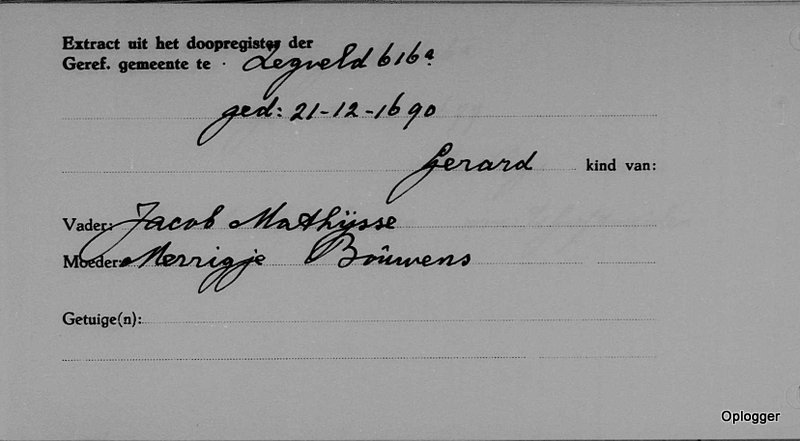 Extract uit het doopregister der
Geref. gemeente te Zegveld 616a
ged: 21-12-1690
Gerard kind van:
Vader: Jacob Mathijsse
Moeder: Merrigje Boûwens
Getuige(n):
Oplogger